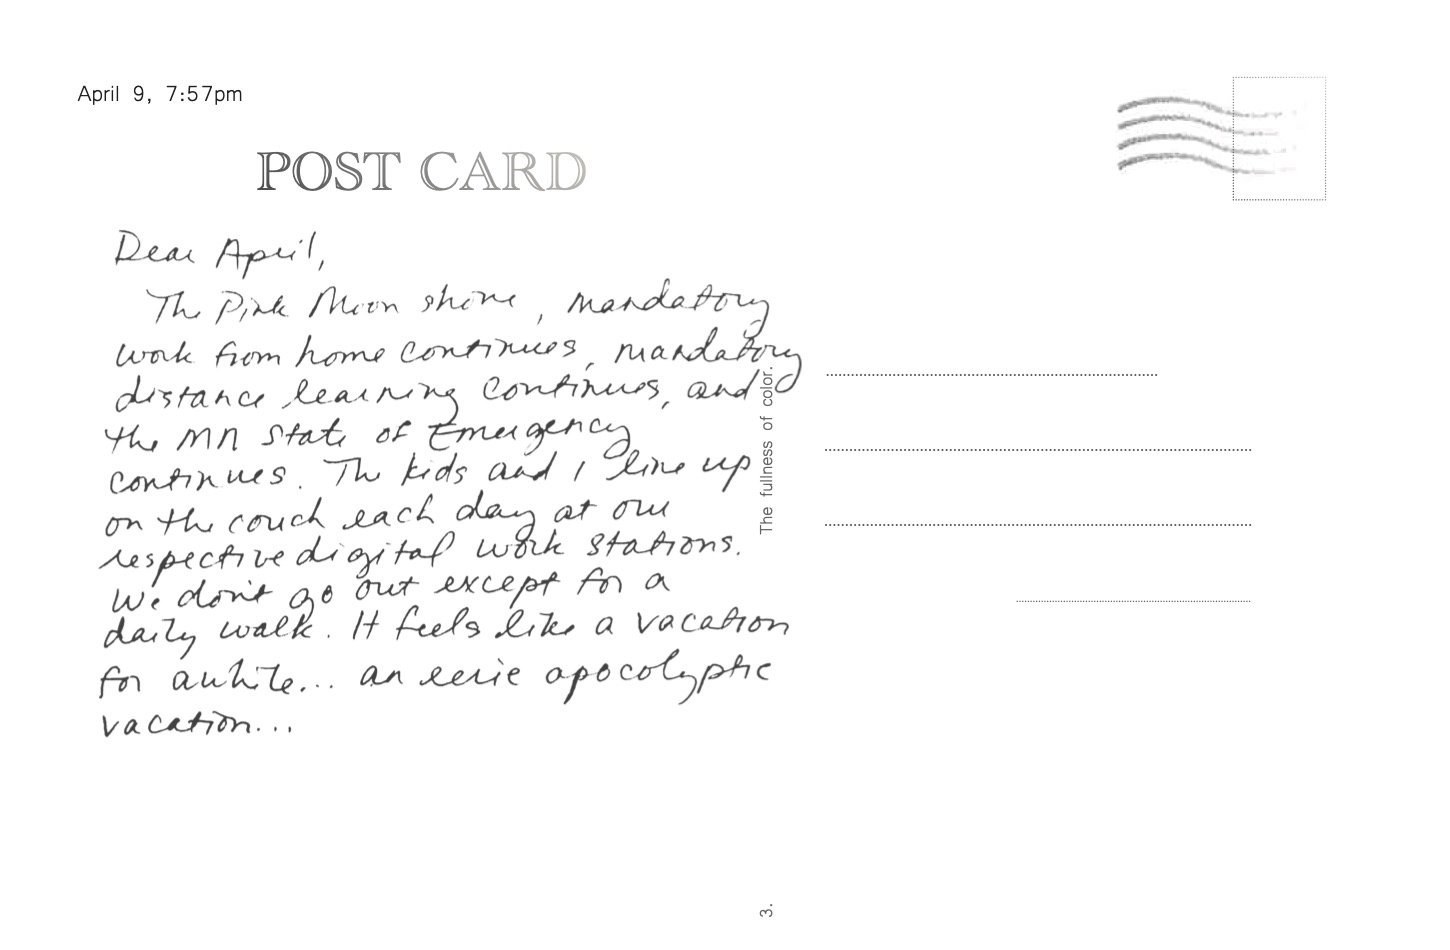 April 9, 7:57pm
POST CARD
Dear April,
The Pink Moon shone, mandatory
work from home continues, mandatory
distance learning continues, and
the MN State of Emergency
continues. The kids and I line up
on the couch each day at our
respective digital work stations.
We don't go out except for a
daily walk. It feels like a vacation
for awhile... an eerie apocolyptic
vacation...
The fullness of color.
3.